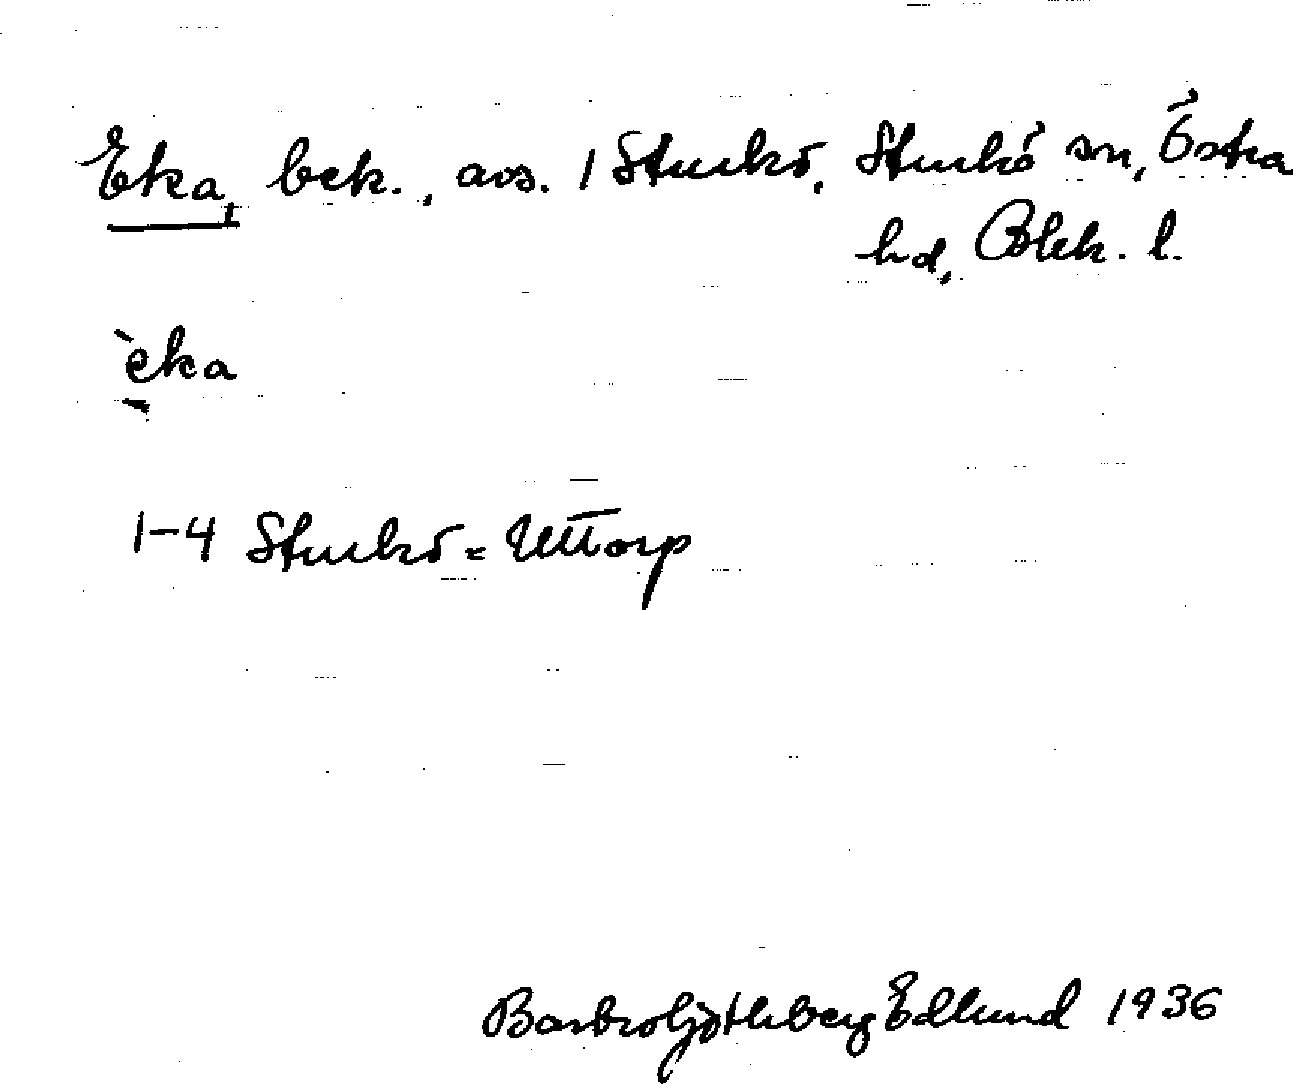 Eka, bek., avs. 1 Sturkö, Sturkö sn, Östra
hd, Blek. l.
èka
1-4 Sturkö = Uttorp
Barbro Götheberg Edlund 1936